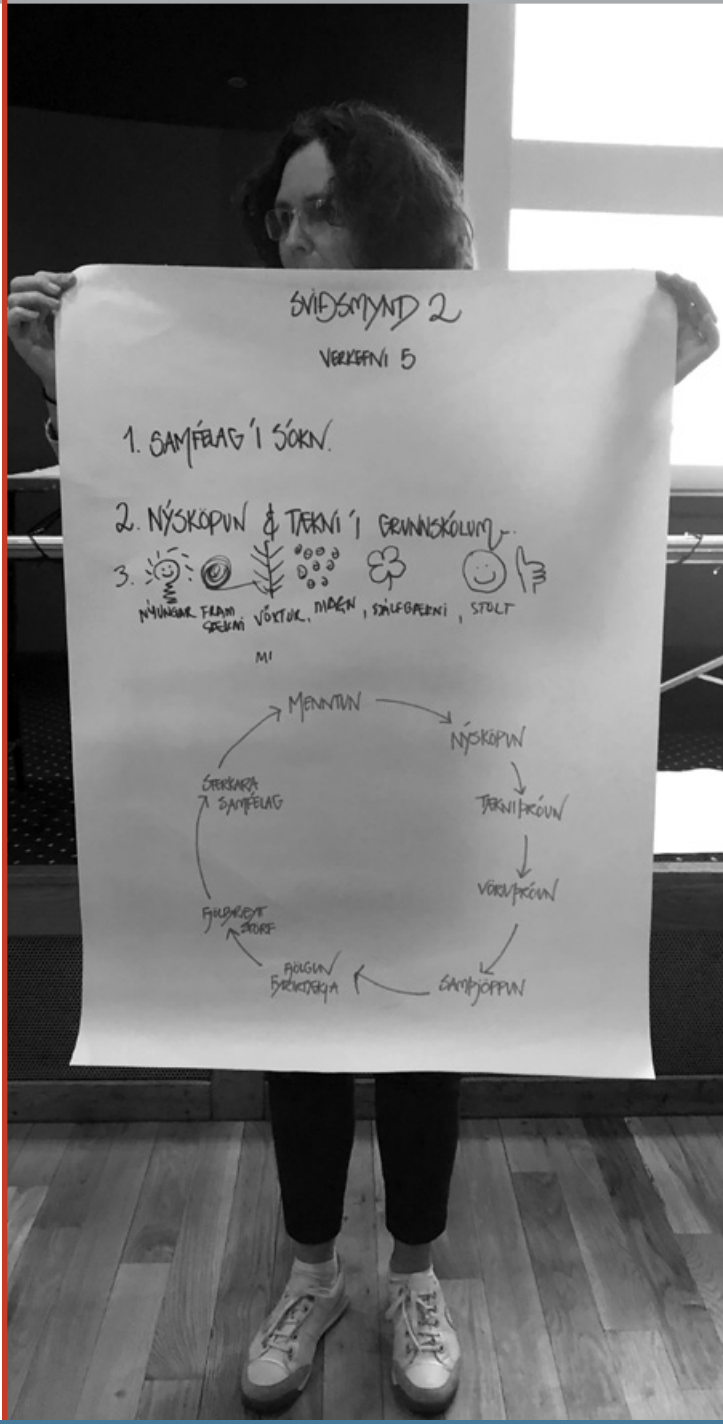 SVIÐSMYND 2
VERKEFNI 5
1. SAMFÉLAG Í SÓKN.
2. NÝSKÖPUN & TÆKNI Í GRUNNSKÓLUM
3.
NÝUNGAR FRAM SÆKNI, VÖXTUR, MAGN, SJÁLFBÆRNI, STOLT
MI
MENNTUN
NÝSKÖPUN
TÆKNIÞRÓUN
VÖRUÞRÓUN
SAMÞJÖPPUN
FJÖLGUN
FYRIRTÆKJA
FJÖLBREYT
STÖRF
STERKARA
SAMFÉLAG